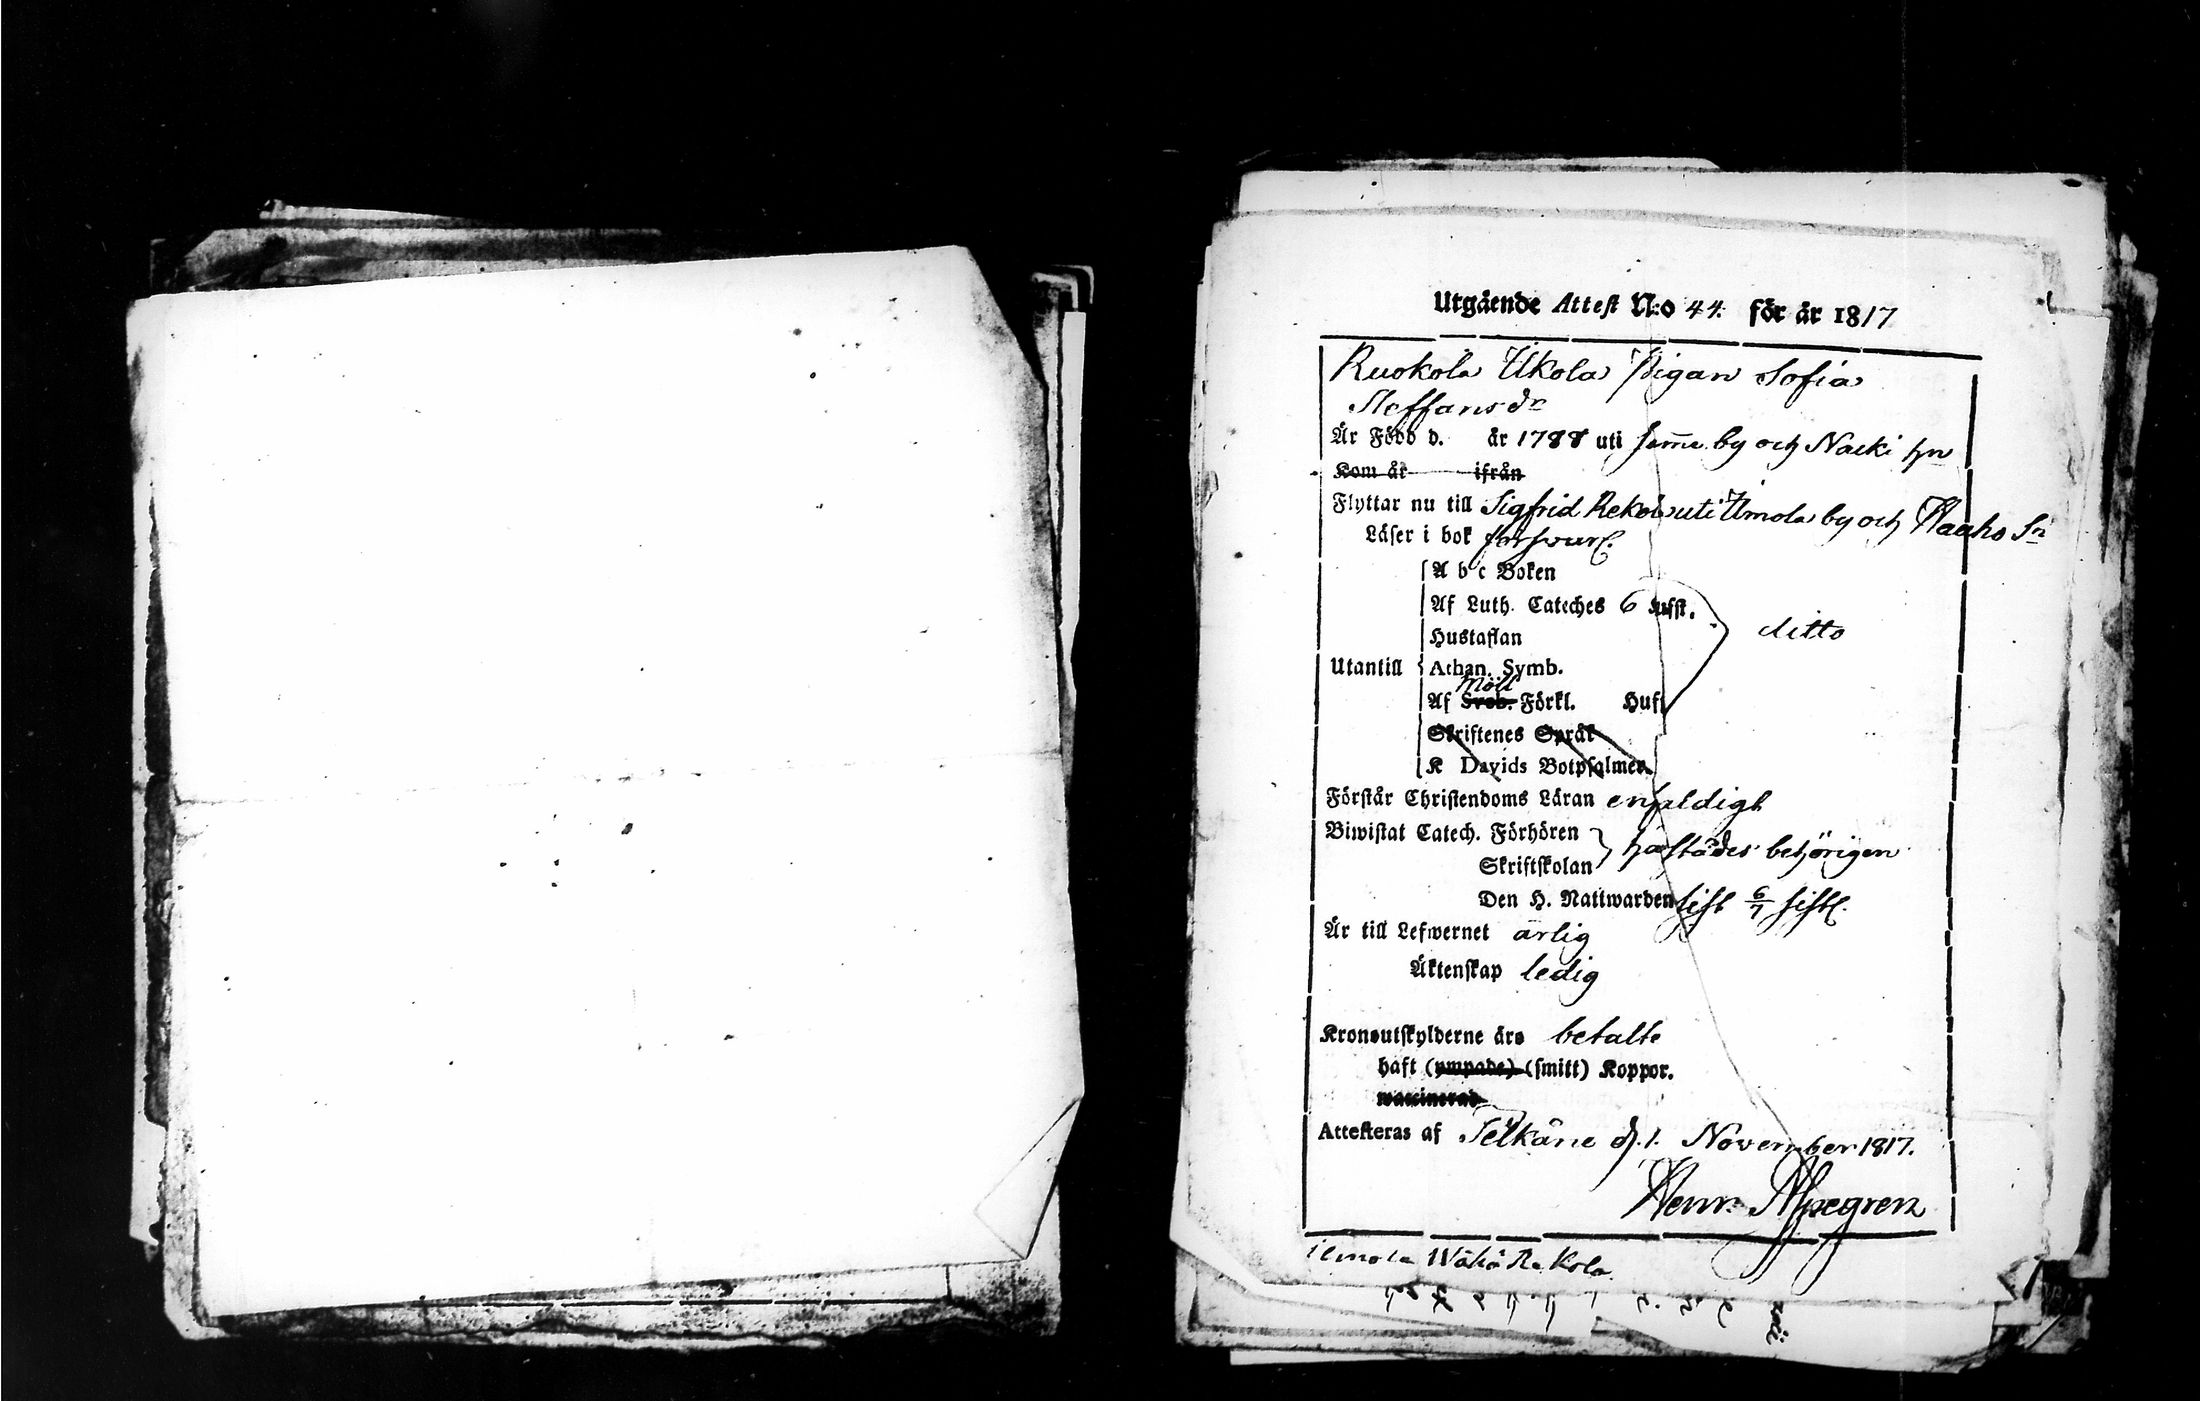 Utgående Attest N:o 44. för år 1817
Ruokola Ukola Pigan Sofia
Steffansdr
Är Född d. år 1788 uti samme by och Näcki hn
Kom år ifrån
Flyttar nu till Sigfrid Rekola uti Ilmola by och Haaho Sn
Läser i bok försvarl.
A b c Boken
Af Luth. Cateches 6 Hufst.
Hustaflan
ditto
Utantill Athan. Symb.
Möll
Af Sveb. Förkl. Hufst
Skriftenes Språk
K Davids Botpsalmer
Förstår Christendoms Läran enfaldigt
Biwistat Catech. Förhören
Skriftskolan
behörigen
Den H. Nattwarden sist 6/7 sistl.
Är till Lefwernet ärlig
Äktenskap ledig
Kronoutskylderne äro betalte
haft (ympade) (smitt) Koppor.
waccinerad
Attesteras af Selkäne d. 1. November 1817.
Henr. Ahlgren
ilmola Wähä Rekola